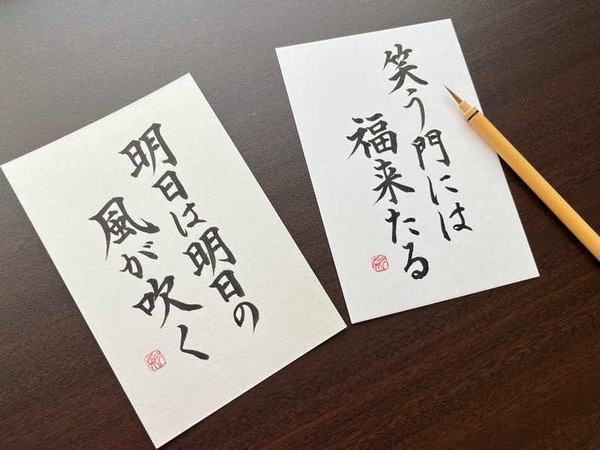 明日は明日の
風が吹く
笑う門には
福来たる